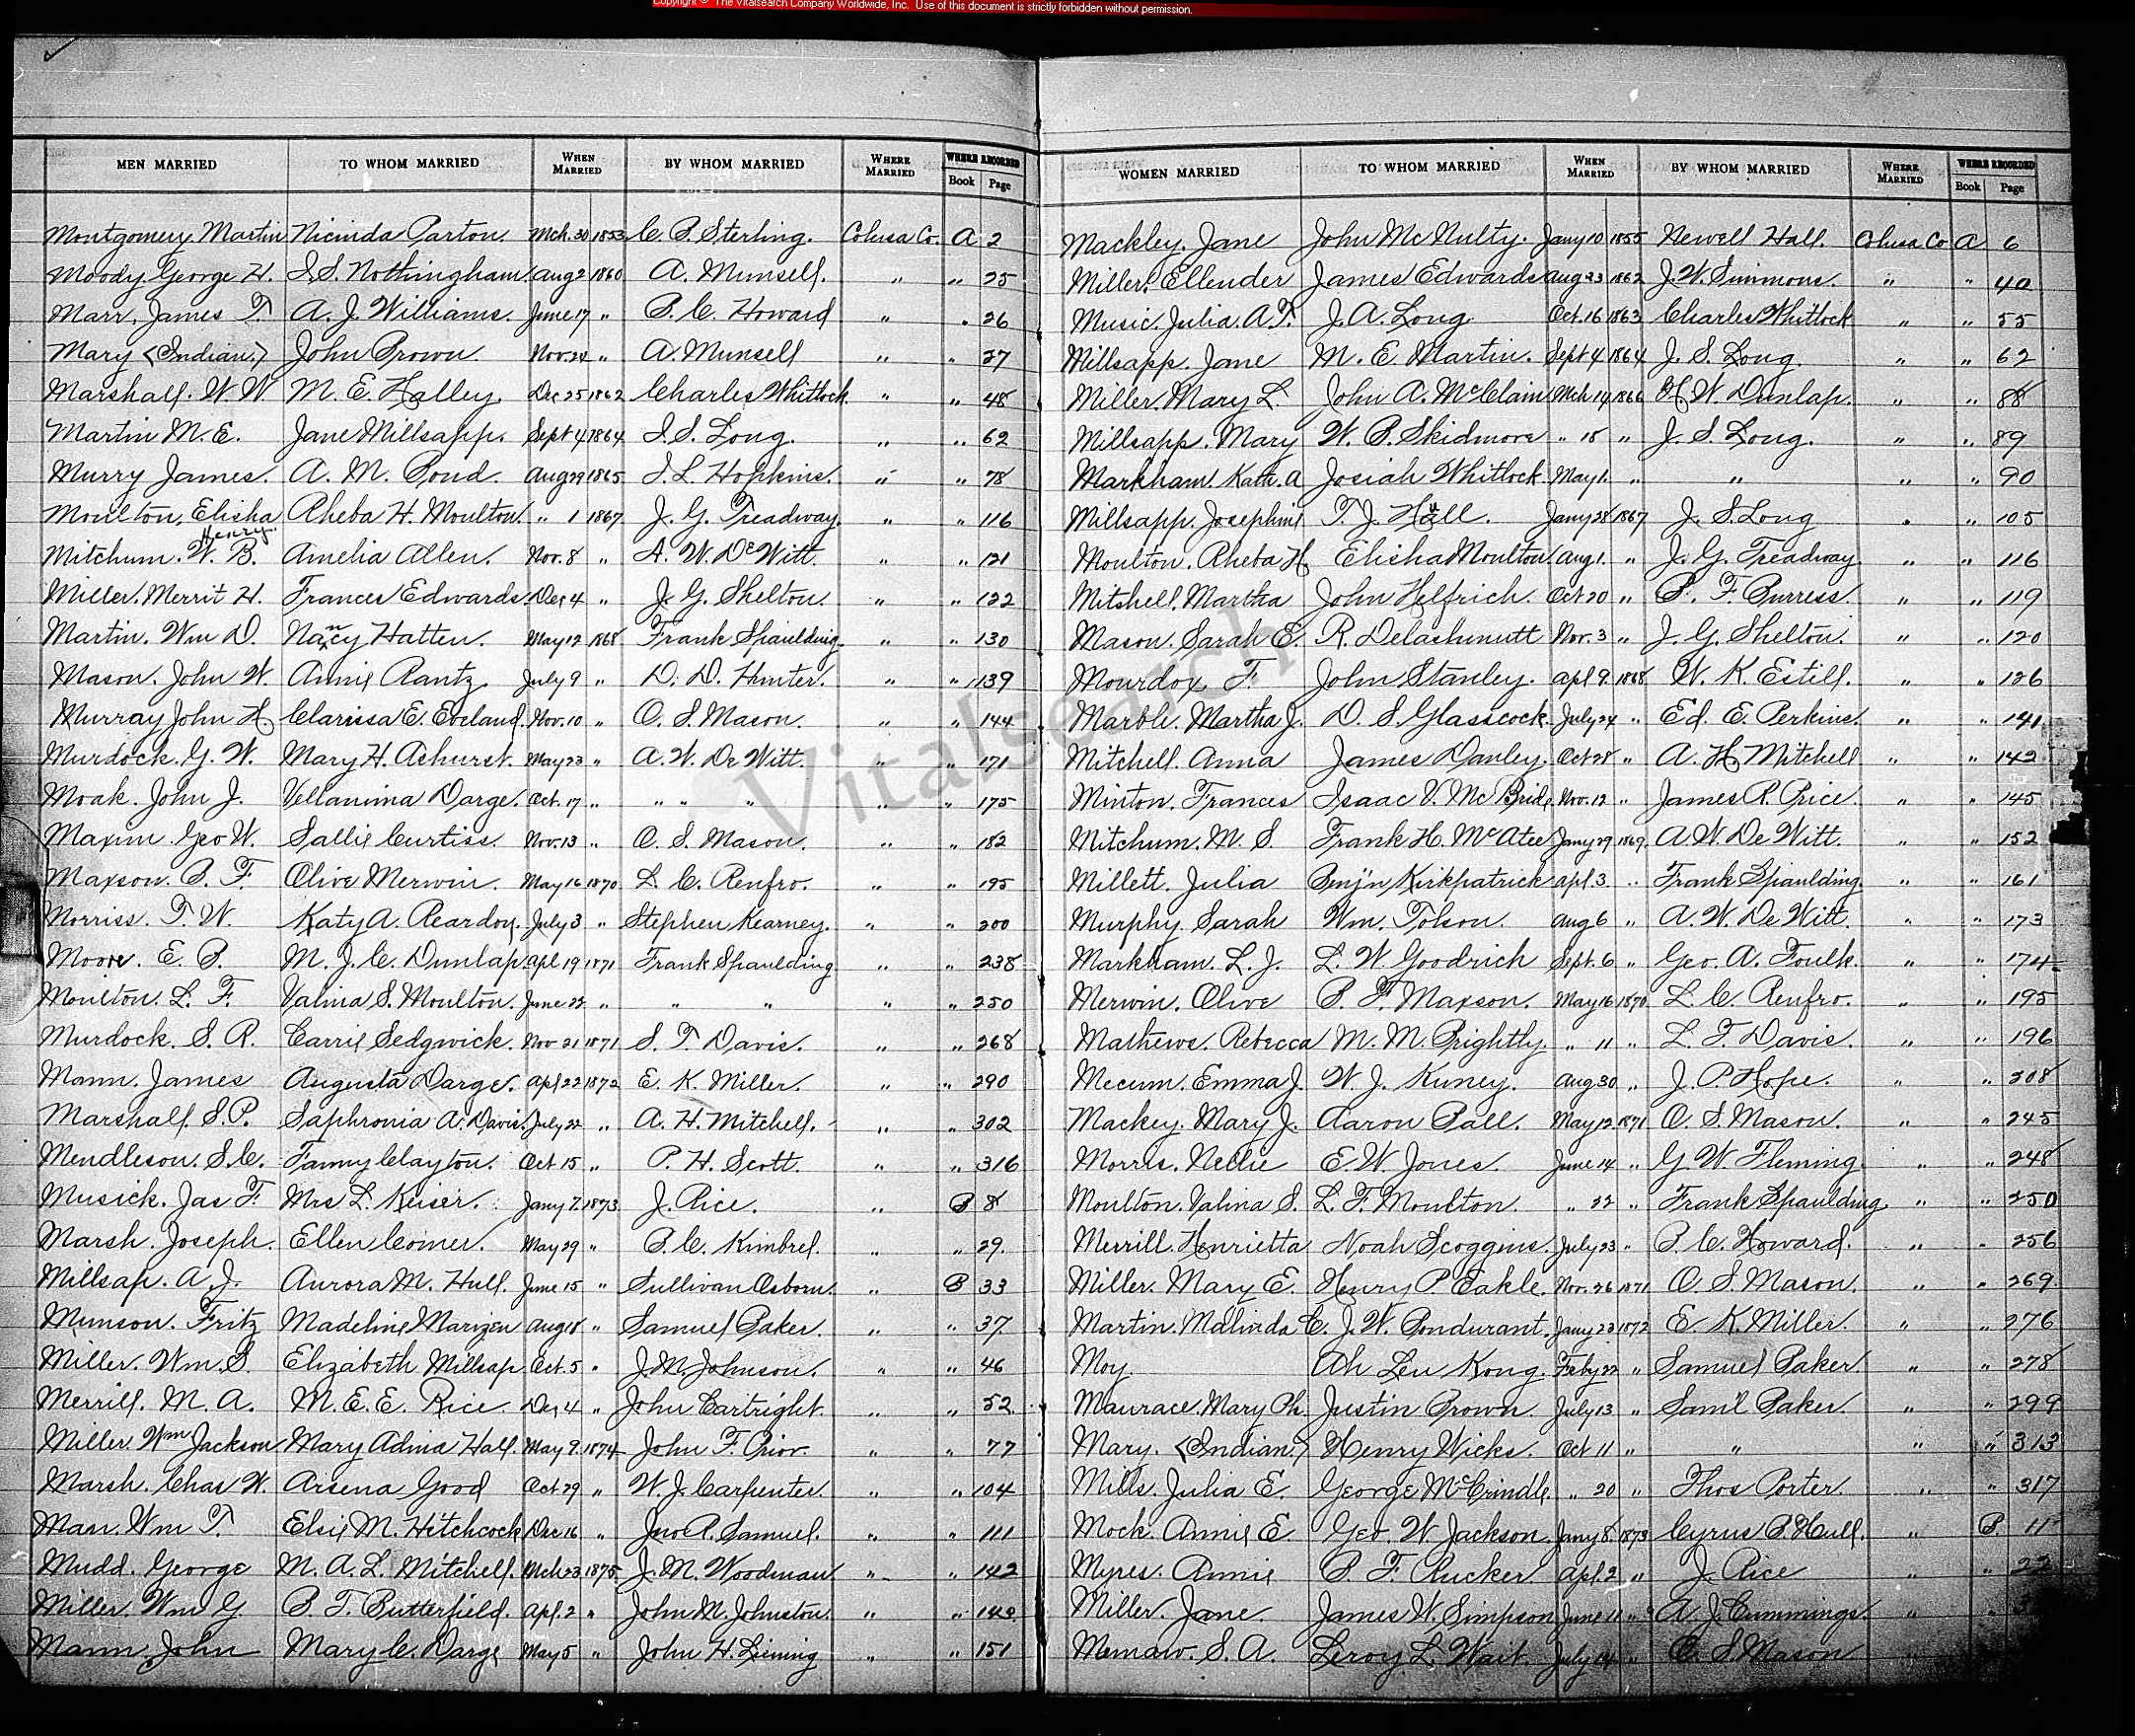 Copyright © The Vitalsearch Company Worldwide, Inc. Use of this document is strictly forbidden without permission.
MEN MARRIED TO WHOM MARRIED WHEN MARRIED BY WHOM MARRIED WHERE MARRIED WHERE RECORDED Book Page
Montgomery. Martin Nicinda Parton. Mch. 30 1853 C. B. Sterling. Colusa Co. A 2
Moody. George H. I. S. Nothingham. Aug 2 1860 A. Munsell. " " 25
Marr. James T. A. J. Williams. June 17 " P. C. Howard " " 26
Mary (Indian.) John Brown. Nov. 24 " A. Munsell " " 27
Marshall. W. W M. E. Halley. Dec 25 1862 Charles Whitlock. " " 48
Martin M. E. Jane Millsapp. Sept 4 1864 I. S. Long. " " 62
Murry James. A. M. Pond. Aug 29 1865 I. L. Hopkins. " " 78
Moulton, Elisha Henry. Rheba H. Moulton. " 1 1867 J. G. Treadway. " " 116
Mitchum. W. B. Amelia Allen. Nov. 8 " A. W. DeWitt. " " 121
Miller. Merrit H. Frances Edwards. Dec 4 " J. G. Shelton. " " 122
Martin. Wm D. Nancy Hatten. May 12 1868 Frank Spaulding. " " 130
Mason. John W. Annie Rantz July 9 " D. D. Hunter. " " 139
Murray John H. Clarissa E. Eveland. Nov. 10 " O. S. Mason. " " 144
Murdock. G. W. Mary H. Ashurst. May 23 " A. W. De Witt. " " 171
Moak. John J. Vellamina Darge. Oct. 17 " " " " " " 175
Maxim Geo W. Sallie Curtiss. Nov. 13 " O. S. Mason. " " 182
Maxson. B. F. Olive Merwin. May 16 1870 L. C. Renfro. " " 195
Morriss. T. W. Katy A. Reardon. July 3 " Stephen Kearney. " " 200
Moore. E. B. M. J. C. Dunlap. Apl 19 1871 Frank Spaulding " " 238
Moulton. L. F. Valina S. Moulton. June 22 " " " " " 250
Murdock. S. R. Carrie Sedgwick. Nov 21 1871 S. T. Davis. " " 268
Mann. James Augusta Darge. Apl 22 1872 E. K. Miller. " " 290
Marshall. S. P. Saphronia A. Davis. July 22 " A. H. Mitchell. " " 302
Mendleson. S. C. Fanny Clayton. Oct 15 " P. H. Scott. " " 316
Musick. Jas F. Mrs L. Keiser. Jany 7. 1873 J. Rice. " B 8
Marsh. Joseph. Ellen Comer. May 29 " B. C. Kimbrel. " " 29.
Millsap. A. J. Aurora M. Hull. June 15 " Sullivan Osborn. " B 33
Munson. Fritz Madeline Marizen Aug 18 " Samuel Baker. " " 37.
Miller. Wm. S. Elizabeth Millsap Oct. 5 " J. M. Johnson. " " 46
Merrill. M. A. M. E. E. Rice Dec 4 " John Cartright. " " 52.
Miller Wm Jackson Mary Adina Hall. May 9. 1874 John F. Prior. " " 77
Marsh. Chas W. Arsena Good Oct 29 " W. J. Carpenter. " " 104
Marr. Wm T. Elsie M. Hitchcock Dec 16 " Jno R. Samuel. " " 111
Mudd. George M. A. L. Mitchell. Mch 23 1875. J. M. Woodman " " 142
Miller. Wm G. B. T. Butterfield. Apl. 2 " John M. Johnston. " "
Mann. John Mary C. Darge May 5 " John H. Liening " " 151
WOMEN MARRIED TO WHOM MARRIED WHEN MARRIED BY WHOM MARRIED WHERE MARRIED WHERE RECORDED Book Page
Mackley. Jane John McNulty. Jany 10 1855 Newell Hall. Colusa Co A 6
Miller. Ellender James Edwards Aug 23 1862 J. W. Simmons. " " 40
Music. Julia. A. T. J. A. Long Oct. 16 1863 Charles Whitlock " " 55
Millsapp. Jane M. E. Martin. Sept 4 1864 J. S. Long. " " 62
Miller. Mary L. John A. McClain Mch 14 1866 H. W. Dunlap. " " 88
Millsapp. Mary W. B. Skidmore " 18 " J. S. Long. " " 89
Markham Kath. A Josiah Whitlock. May 1. " " " " 90
Millsapp. Josephine T. J. Hull. Jany 28 1867 J. S. Long " " 105
Moulton. Rheba H. Elisha Moulton. Aug 1. " J. G. Treadway. " " 116
Mitshell. Martha John Helfrich. Oct 20 " B. F. Burress. " " 119
Mason. Sarah E. R. Delashmutt Nov. 3 " J. G. Shelton. " " 120
Mourdox F. John Stanley. Apl 9. 1868. W. K. Estill. " " 126
Marble. Martha J. D. S. Glasscock. July 24 " Ed. E. Perkins. " " 141
Mitchell. Anna James Danley. Oct 28 " A. H. Mitchell " " 142
Minton. Frances Isaac V. McBride Nov. 12 " James R. Price. " " 145
Mitchum. M. S Frank H. McAtee Jany 29 1869. A. W. De Witt. " " 152
Millett. Julia Benj'n Kirkpatrick Apl. 3 " Frank Spaulding. " " 161
Murphy. Sarah Wm. Tolson. Aug 6 " A. W. De Witt. " " 173
Markham. L. J. L. W. Goodrich Sept. 6 " Geo. A. Foulk. " " 174
Merwin. Olive B. F. Maxson. May 16 1870. L. C. Renfro. " " 195
Mathews. Rebecca M. M. Brightly. " 11 " L. F. Davis. " " 196
Mecum. Emma J. W. J. Kuney. Aug 30 " J. P. Hope. " " 208
Mackey. Mary J. Aaron Ball. May 12. 1871 O. S. Mason. " " 245
Morris. Nellie E. W. Jones. June 14 " G. W. Fleming. " " 248
Moulton. Valina S. L. F. Moulton. " 22 " Frank Spaulding. " " 250
Merrill. Henrietta Noah Scoggins. July 23 " P. C. Howard. " " 256
Miller. Mary E. Henry P. Eakle. Nov. 26 1871 O. S. Mason. " " 269.
Martin. Malinda C. J. W. Bondurant. Jany 23 1872 E. K. Miller. " " 276
Moy. Ah Leu Kong. Feby 22 " Samuel Baker. " " 278
Maurace. Mary Ph. Justin Brown. July 13 " Sam'l Baker. " " 299
Mary. (Indian.) Henry Wicks. Oct 11 " " " " 313
Mills. Julia E. George McCrindle. " 20 " Thos Porter. " " 317
Mock. Annie E. Geo. W. Jackson. Jany 8. 1873 Cyrus B. Hull. " B. 11
Myres. Annie B. F. Rucker Apl. 2 " J. Rice " " 22
Miller. Jane. James W. Simpson June 11 " A. J. Cummings. "
S. A. Leroy L. Wait. July 14 " O. S. Mason
Vitalsearch